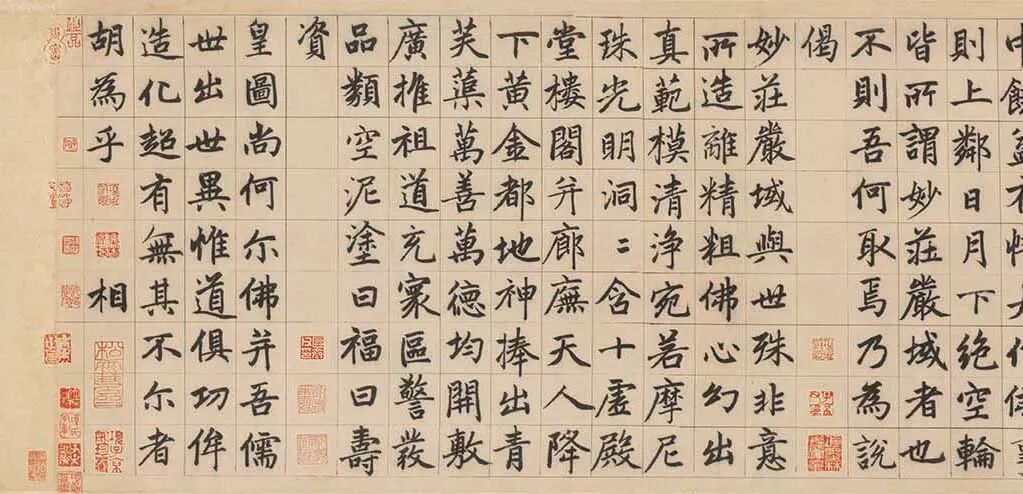 則上鄰日月下絕空輪
皆所謂妙莊嚴域者也
不則吾何取焉乃為說
偈
妙莊嚴域與世殊非意
所造離精粗佛心幻出
真範模清淨宛若摩尼
珠光明洞〻含十虛殿
堂樓閣并廊廡天人降
下黃金都地神捧出青
芙蕖萬善萬德均開敷
廣推祖道充寰區警發
品類空泥塗曰福曰壽
資
皇圖尚何尔佛并吾儒
世出世異惟道俱功侔
造化超有無其不尔者
胡為乎 相